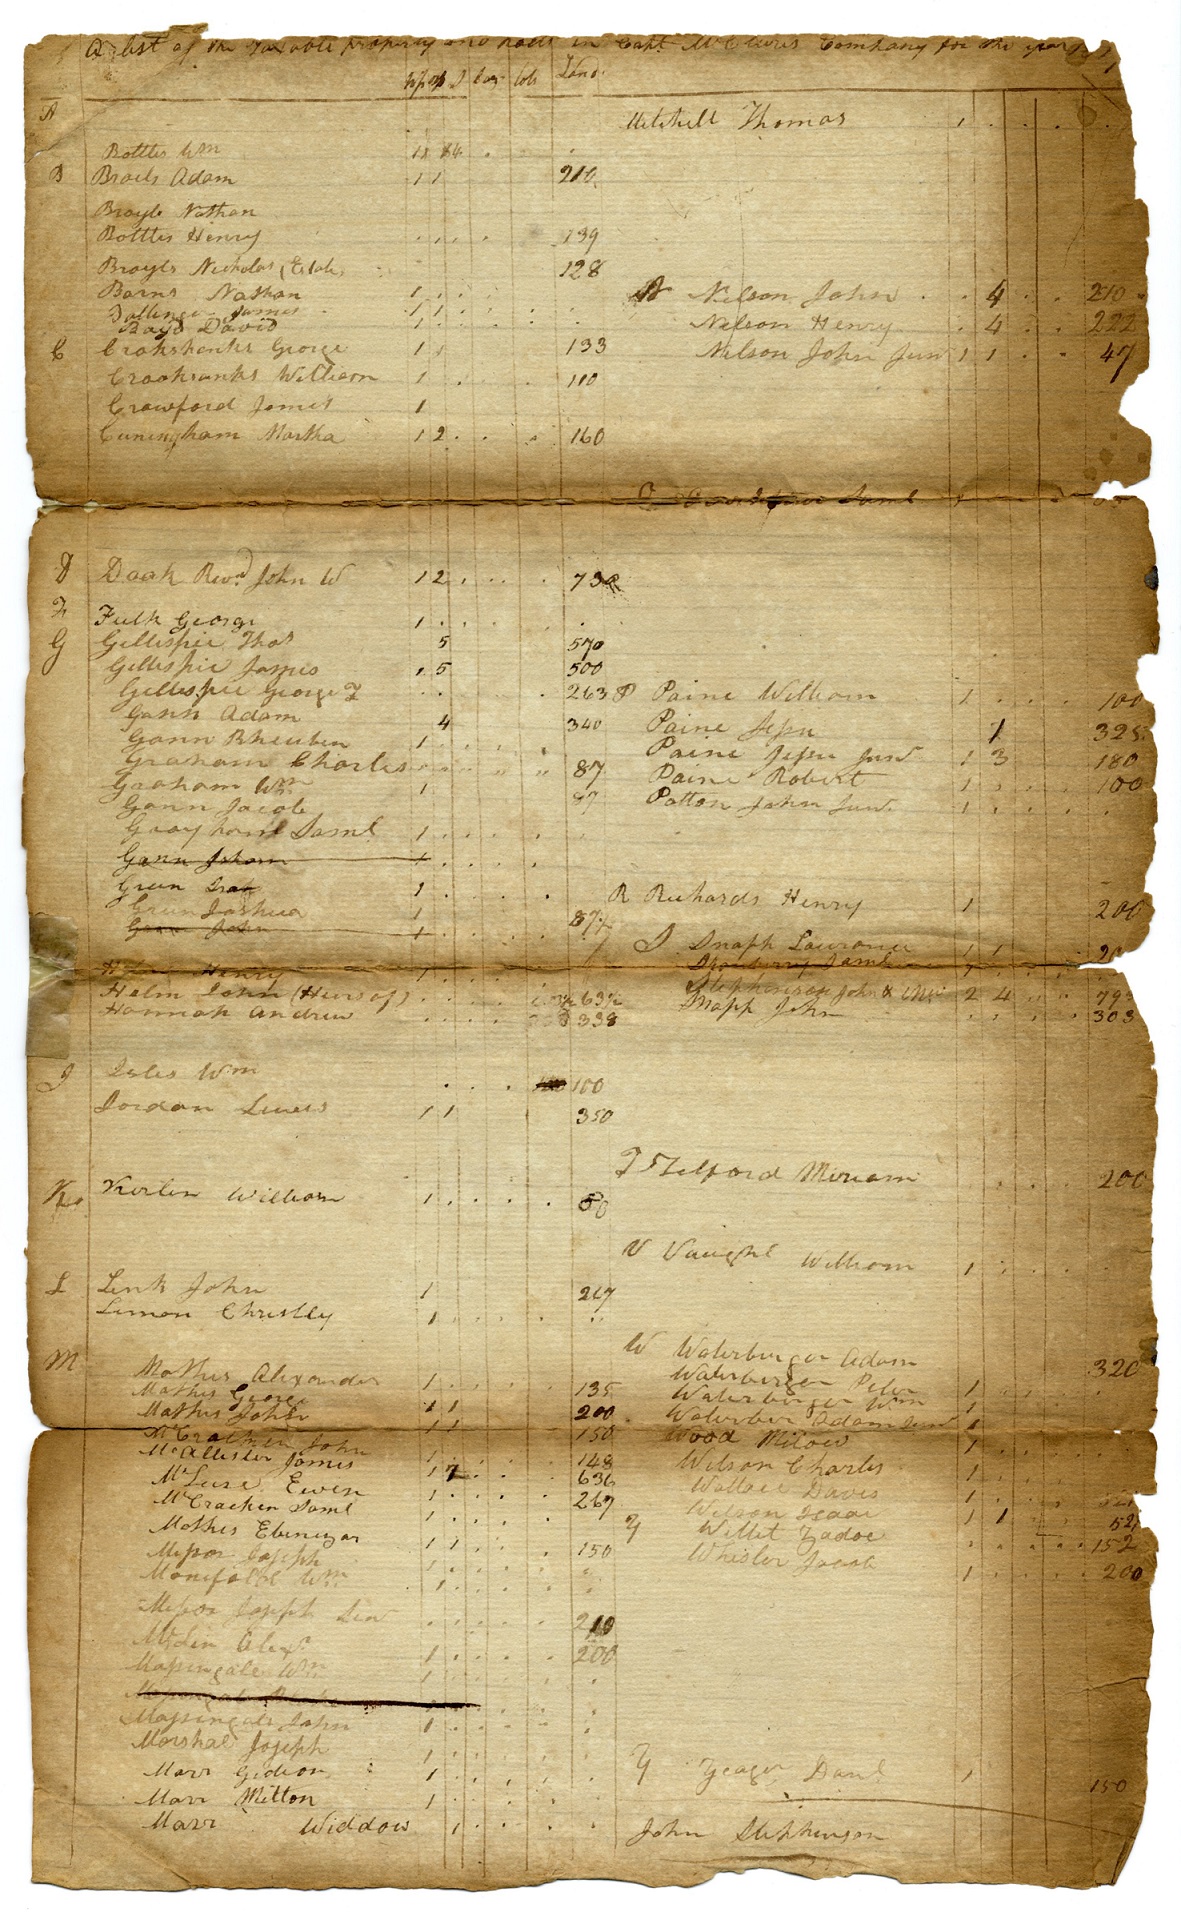 A list of the Taxable property and polls in Capt. McClures Company for the year
Land
A
Bottles Wm
B Broils Adam 1 1 210
Broyls Nathan
Bottles Henry 139
Broyls Nicholas (Estate) 128
Barns Nathan 1
Ballinger James 1 1
Boyd David 1
C Crookshanks George 1 133
Crookshanks William 1 110
Crawford James 1
Cuningham Martha 1 2 160
D Doak Revd. John W 1 2 730
F Fulk George 1
G Gillespie Thos 5 570
Gillespie James 1 5 500
Gillespie George F 263
Gann Adam 4 340
Gann Rheuben 1
Graham Charles 87
Graham Wm 1 97
Gann Jacob
Grayham Saml 1
Gann Isham 1
Green Isaac 1
Green Joshua 1 87¼
Green John 1
Henry 1
Helm John (Heirs of) 63½
Hannah Andrew 338
J Isles Wm 100
Jordan Lewis 1 1 350
K Kerlin William 1 50
L Link John 1 217
Limon Christley 1
M
Mathes Alexander 1 135
Mathes George 1 1 200
Mathes John 1 1 150
McCracken John 1 148
McAllister James 1 7 636
McLure Ewen 1 267
McCracken Saml 1
Mathes Ebenezar 1 1 150
Messor Joseph
Monifold Wm 1
Messor Joseph Senr 210
McLin Alexr. 1 200
Massingale Wm 1
Massingale John 1
Marshal Joseph 1
Marr Gideon 1
Marr Milton 1
Marr Widdow 1
Mitchell Thomas 1
N Nelson John 4 210
Nelson Henry 4 222
Nelson John Junr 1 1 47
Saml
P Paine William 1 100
Paine Jesse 1 325
Paine Jesse Junr 1 3 180
Paine Robert 1 100
Patton John Junr. 1
R Richards Henry 1 200
S Snapp Lawrence 1 1
Saml
Stephenson John & 2 4 795
Snapp John 303
T Telford Miriam 200
V Vaught William 1
W Waterberger Adam 320
Waterberger Peter 1
Waterberger Wm 1
Waterber Adam Junr 1
Wood Milow 1
Wilson Charles 1
Wallace Davis 1
Wilson Isaac 1 1 52
Z Willet Zadoc 152
Whisler Jacob 1 200
Y Yeager Danl 1 150
John Stephenson